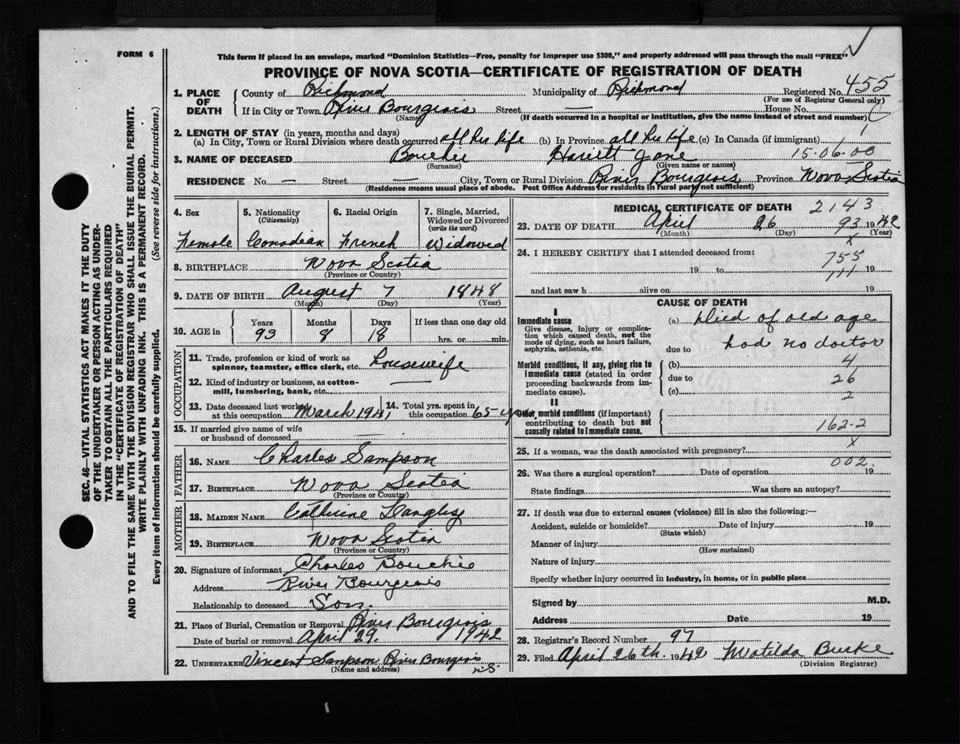 FORM 6
This form if placed in an envelope, marked "Dominion Statistics—Free, penalty for improper use $300," and properly addressed will pass through the mail "FREE"
PROVINCE OF NOVA SCOTIA—CERTIFICATE OF REGISTRATION OF DEATH
1. PLACE OF DEATH County of Richmond Municipality of Richmond Registered No. 455
(For use of Registrar General only)
If in City or Town River Bourgeois Street — House No.
(Name) (If death occurred in a hospital or institution, give the name instead of street and number)
2. LENGTH OF STAY (in years, months and days)
(a) In City, Town or Rural Division where death occurred all his life (b) In Province all his life (c) In Canada (if immigrant)
3. NAME OF DECEASED Bouchie Hariett Jane 15-06-00
(Surname) (Given name or names)
RESIDENCE No. — Street — City, Town or Rural Division River Bourgeois Province Nova Scotia
(Residence means usual place of abode. Post Office Address for residents in rural parts not sufficient)
4. Sex Female
5. Nationality (Citizenship) Canadian
6. Racial Origin French
7. Single, Married, Widowed or Divorced (write the word) Widowed
8. BIRTHPLACE Nova Scotia
(Province or Country)
9. DATE OF BIRTH August 7 1848
(Month) (Day) (Year)
10. AGE in Years 93 Months 8 Days 18 If less than one day old hrs. or min.
OCCUPATION
11. Trade, profession or kind of work as spinner, teamster, office clerk, etc. Housewife
12. Kind of industry or business, as cotton-mill, lumbering, bank, etc. —
13. Date deceased last worked at this occupation March 1941
14. Total yrs. spent in this occupation 65 yrs
15. If married give name of wife or husband of deceased —
FATHER
16. NAME Charles Sampson
17. BIRTHPLACE Nova Scotia
(Province or Country)
MOTHER
18. MAIDEN NAME Catherine Langley
19. BIRTHPLACE Nova Scotia
(Province or Country)
20. Signature of informant Charles Bouchie
Address River Bourgeois
Relationship to deceased Son
21. Place of Burial, Cremation or Removal River Bourgeois
Date of burial or removal April 29, 1942
22. UNDERTAKER Vincent Sampson River Bourgeois N.S.
(Name and address)
MEDICAL CERTIFICATE OF DEATH 2143
23. DATE OF DEATH April 26 93 1942
(Month) (Day) (Year)
x
24. I HEREBY CERTIFY that I attended deceased from: 755
19 to 19
and last saw h alive on 19
CAUSE OF DEATH
I
Immediate cause
Give disease, injury or complication which caused death, not the mode of dying, such as heart failure, asphyxia, asthenia, etc.
(a) Died of old age
due to had no doctor
Morbid conditions, if any, giving rise to immediate cause (stated in order proceeding backwards from immediate cause).
(b) 4
due to 26
(c) 2
II
Other morbid conditions (if important) contributing to death but not causally related to immediate cause.
162-2
25. If a woman, was the death associated with pregnancy? x
26. Was there a surgical operation? Date of operation 002. 19
State findings Was there an autopsy?
27. If death was due to external causes (violence) fill in also the following:—
Accident, suicide or homicide? Date of injury 19
(State which)
Manner of injury
(How sustained)
Nature of injury
Specify whether injury occurred in industry, in home, or in public place
Signed by M.D.
Address Date 19
28. Registrar's Record Number 97
29. Filed April 26th. 1942 Matilda Burke
(Division Registrar)
SEC. 46—VITAL STATISTICS ACT MAKES IT THE DUTY
OF THE UNDERTAKER OR PERSON ACTING AS UNDER-
TAKER TO OBTAIN ALL THE PARTICULARS REQUIRED
IN THE "CERTIFICATE OF REGISTRATION OF DEATH"
AND TO FILE THE SAME WITH THE DIVISION REGISTRAR WHO SHALL ISSUE THE BURIAL PERMIT.
WRITE PLAINLY WITH UNFADING INK. THIS IS A PERMANENT RECORD.
Every item of information should be carefully supplied. (See reverse side for instructions.)